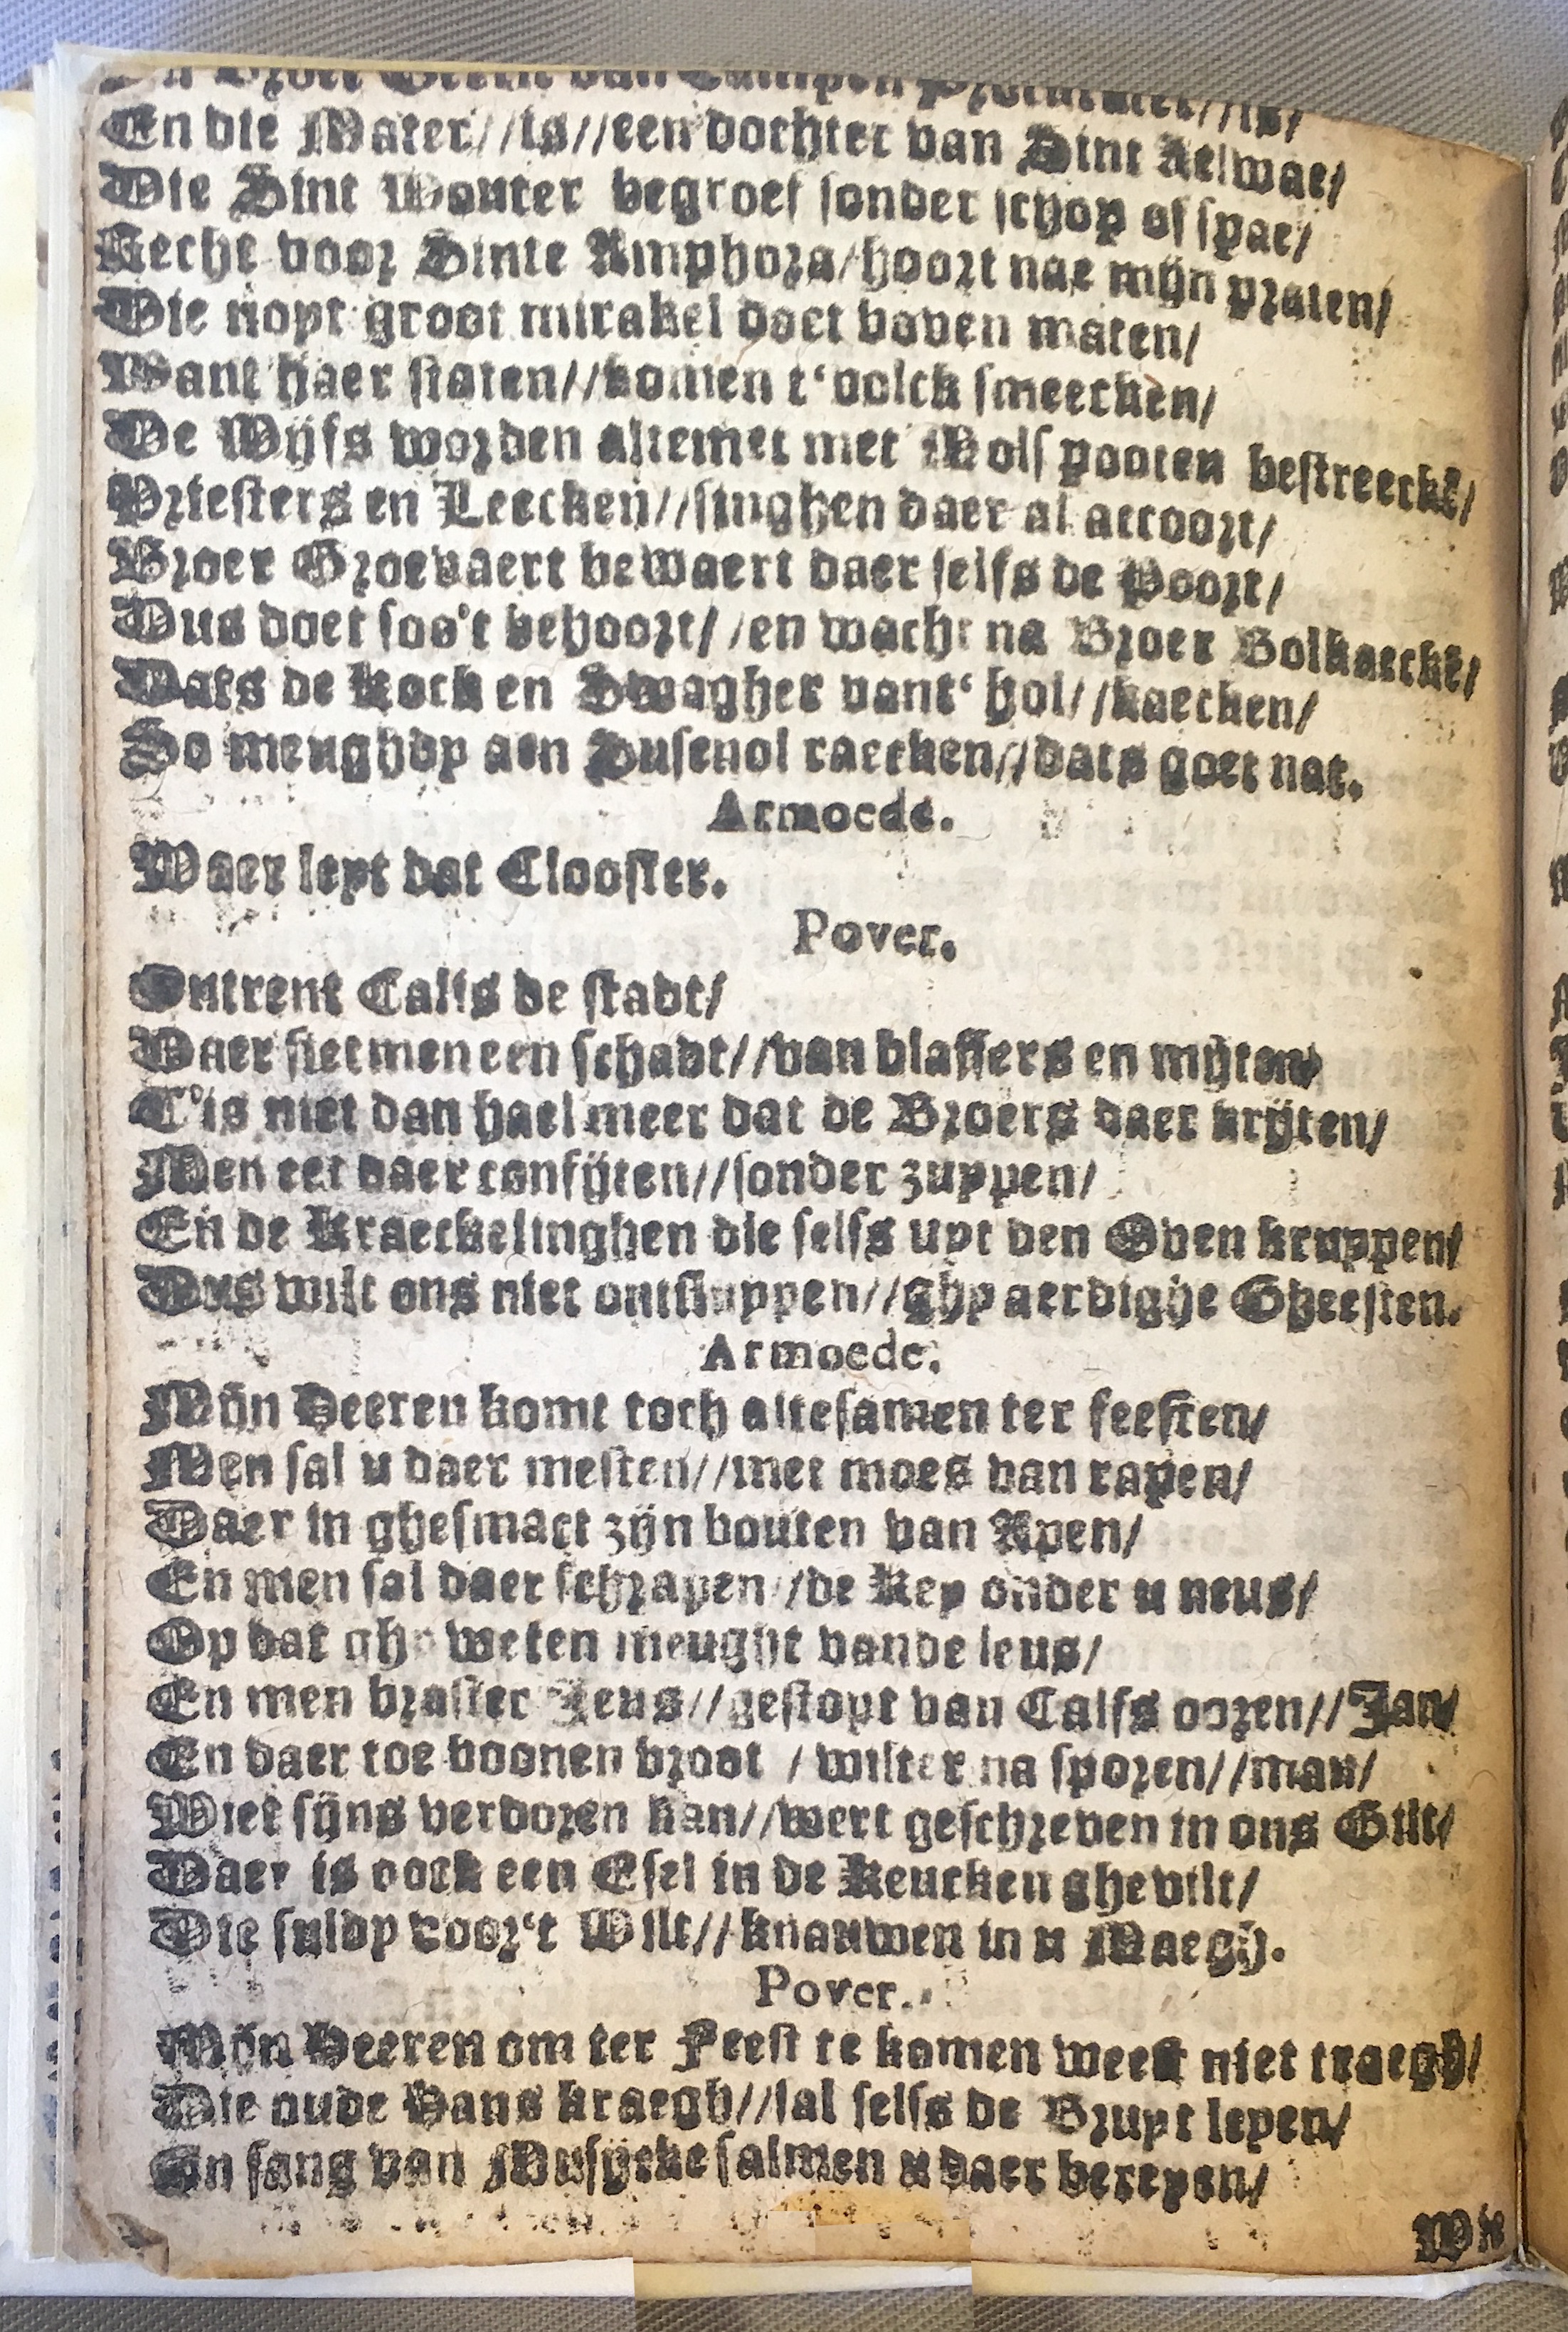 Broer van Campen //is/
En die Mater//is//een dochter van Sint Aelwae/
Die Sint Wouter begroef sonder schop of spae/
Leche voor Sinte Amphora/hoort nae mijn praten/
Die noyt groot mirakel doet boven maten/
Want haer staten//komen t'volck smeecken/
De Wijfs worden altemet met Wolfs pooten bestreecken/
Priesters en Leecken//singhen daer al accoort/
Broer Groevaert bewaert daer selfs de Poort/
Dus doet soo't behoort//en wacht na Broer Bolkaecke/
Dats de kock en Swagher vant' hol//kaecken/
So meughdy aen Susenol raecken//dats goet nat.
Armoede.
Waer leyt dat Clooster.
Pover.
Ontrent Calis de stadt/
Daer sietmen een schadt//van blaffers en mijten/
T'is niet dan hael meer dat de Broers daer krijten/
Men eet daer confijten//sonder zuppen/
En de Kraeckelinghen die selfs uyt den Oven kruppen/
Dus wilt ons niet ontsluppen//ghy aerdighe Gheesten.
Armoede.
Mijn Heeren komt toch altesamen ter feesten/
Men sal u daer mesten//met moes van rapen/
Daer in ghesmact zijn bouten van Apen/
En men sal daer schrapen//de Key onder u neus/
Op dat ghy weten meught vande leus/
En men braster Jeus//gestopt van Calfs ooren//Jan/
En daer toe boonen broot / wilter na sporen//man/
Wiet sijns verdoren kan//wert geschreven in ons Gilt/
Daer is oock een Esel in de Keucken ghevilt/
Die suldy voor't Wilt//knauwen in u Maegh.
Pover.
Mijn Heeren om ter Feest te komen weest niet traegh/
Die oude Hans kraegh//sal selfs de Bruyt leyen/
En sang van Musijcke salmen u daer bereyen/